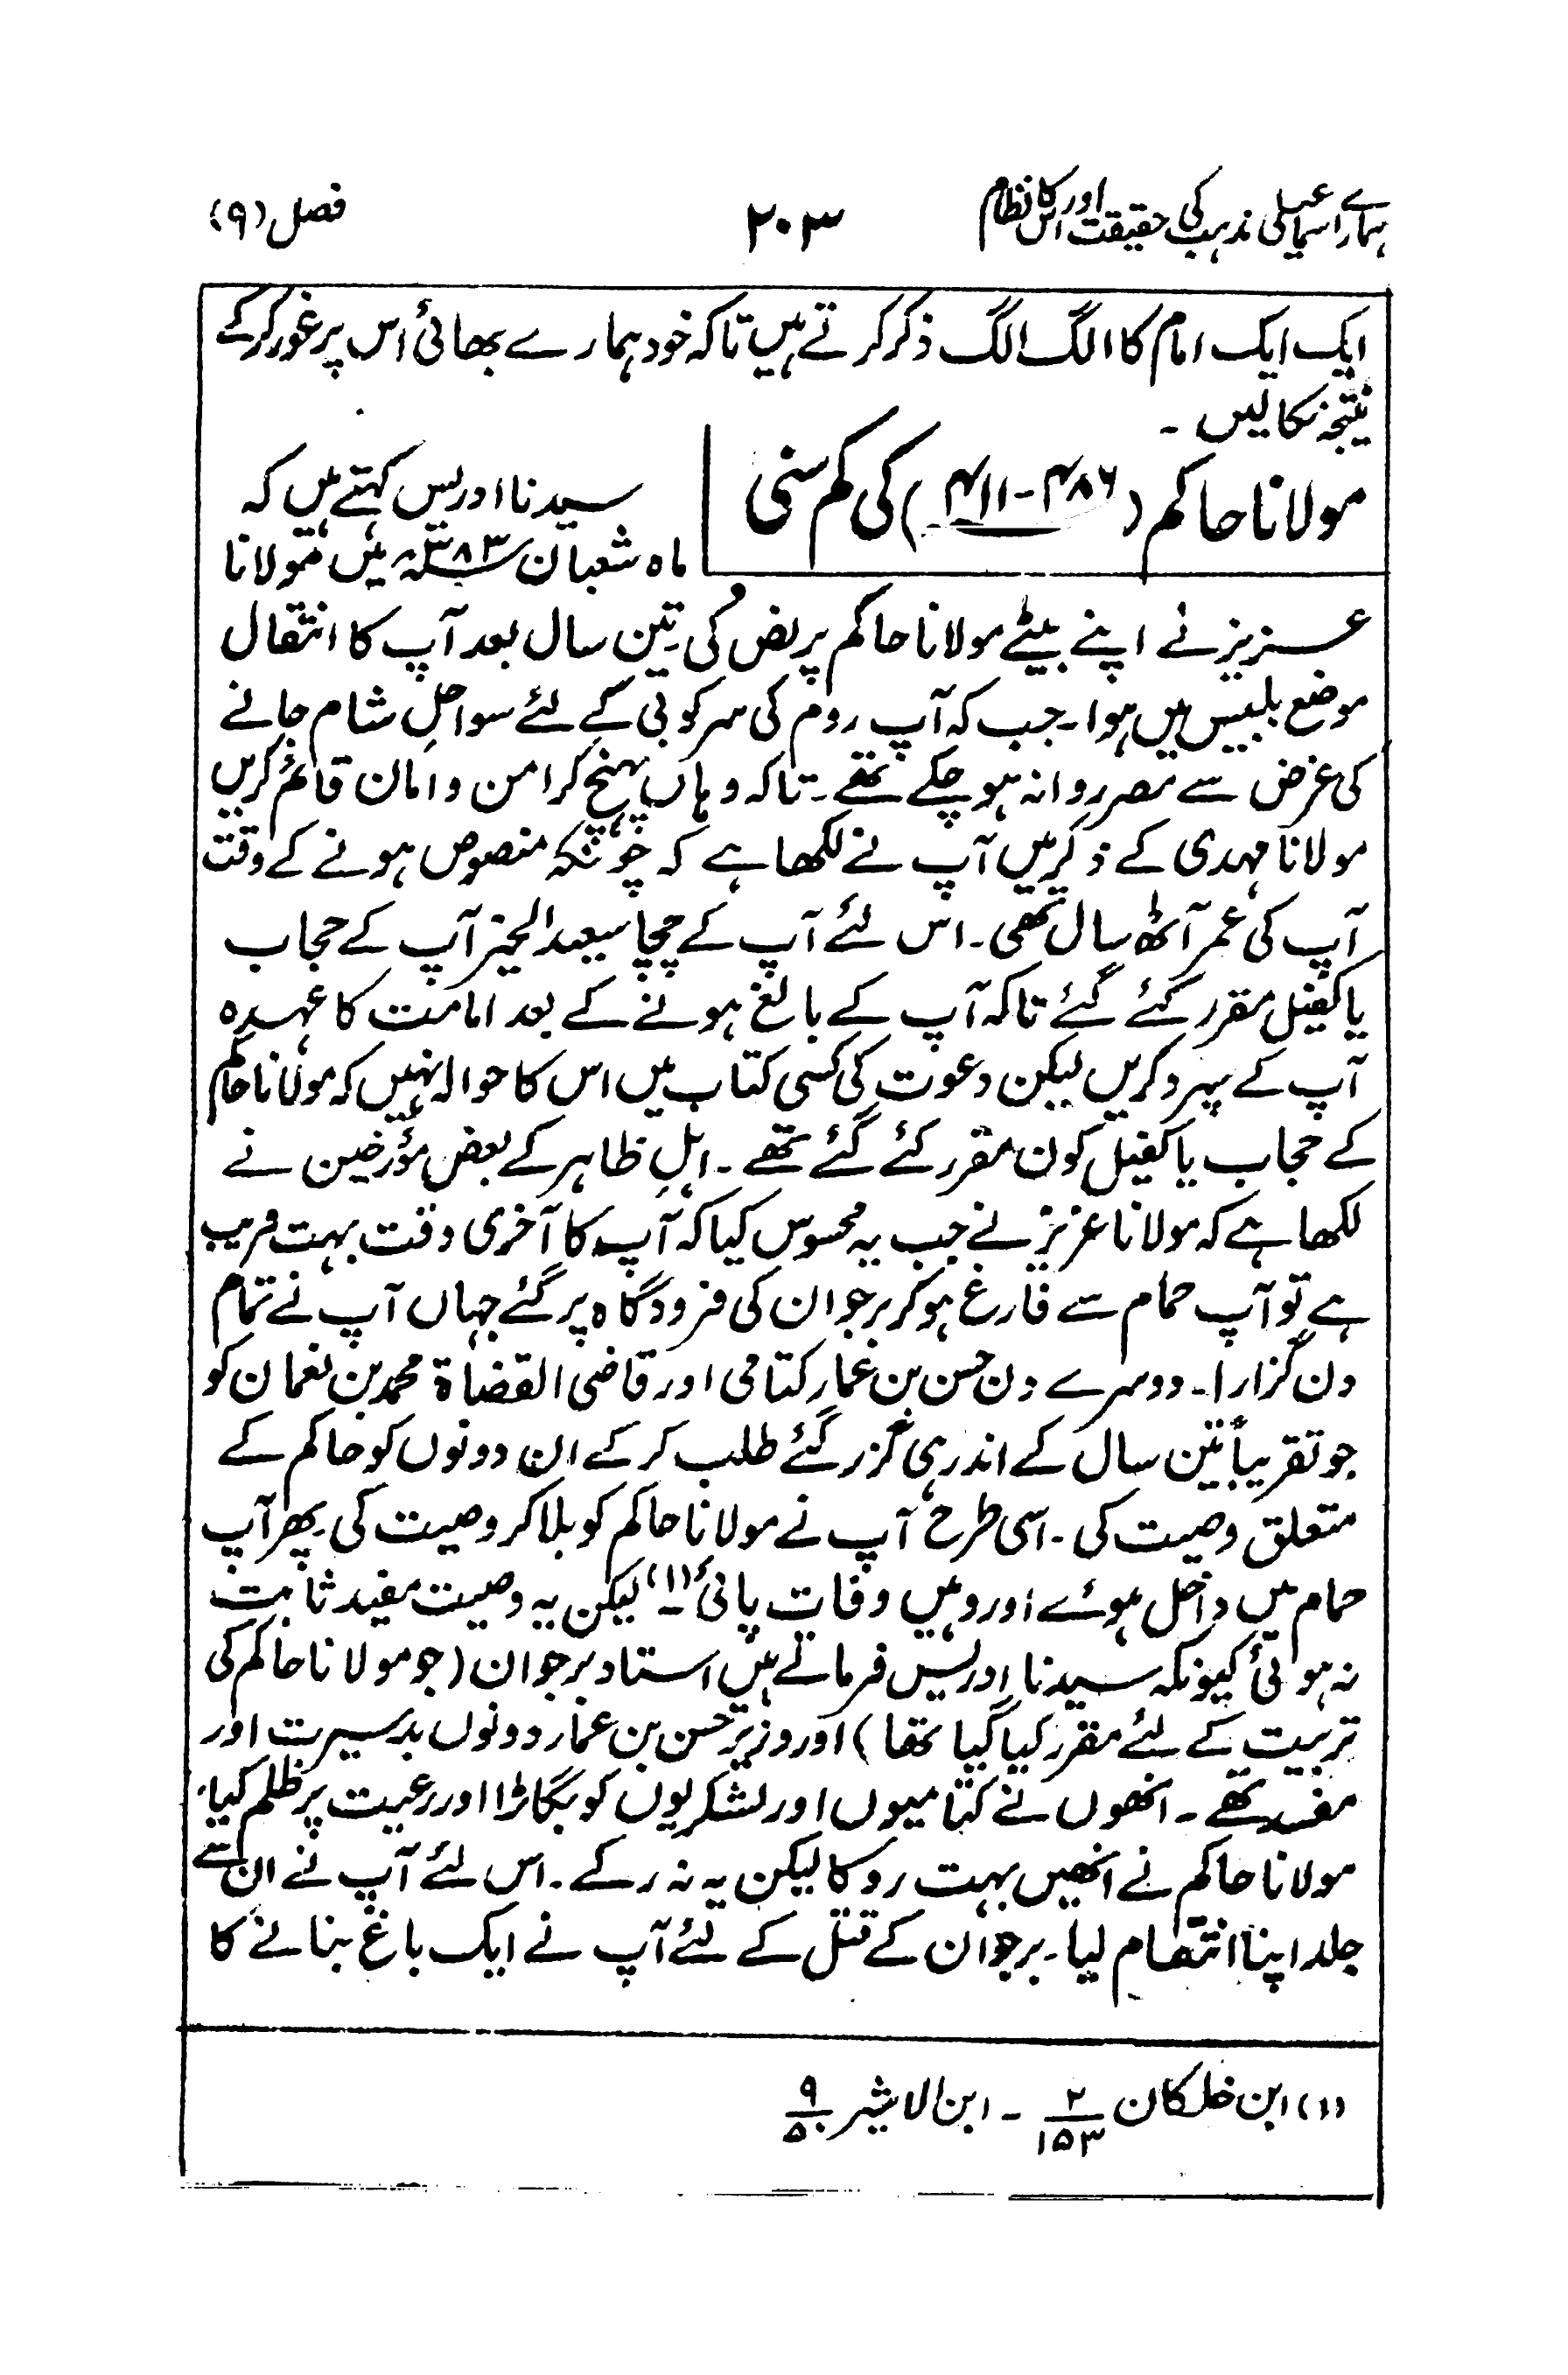 ہمارے اسماعیلی مذہب کی حقیقت اور اس کا نظام
۲۰۳
فصل (۹)
ایک ایک امام کا الگ الگ ذکر کرتے ہیں تاکہ خود ہمارے بھائی اس پر غور کرکے
نتیجہ نکالیں ۔
مولانا حاکم (۴۸۶-۴۱۱) کی کم سنی
سیدنا ادریس کہتے ہیں کہ
ماہ شعبان ۳۸۳ھ میں مولانا
عزیز نے اپنے بیٹے مولانا حاکم پر نص کی تین سال بعد آپ کا انتقال
موضع بلبیس میں ہوا۔ جب کہ آپ روم کی سرکوبی کے لئے سواحلِ شام جانے
کی غرض سے مصر روانہ ہو چکے تھے۔ تاکہ وہاں پہنچ کر امن و امان قائم کریں
مولانا مہدی کے ذکر میں آپ نے لکھا ہے کہ چونکہ منصوص ہونے کے وقت
آپ کی عمر آٹھ سال تھی۔ اس لئے آپ کے چچا سعید الخیر آپ کے حجاب
یا کفیل مقرر کئے گئے تاکہ آپ کے بالغ ہونے کے بعد امامت کا عہدہ
آپ کے سپرد کریں لیکن دعوت کی کسی کتاب میں اس کا حوالہ نہیں کہ مولانا حاکم
کے حجاب یا کفیل کون مقرر کئے گئے تھے۔ اہلِ ظاہر کے بعض مؤرخین نے
لکھا ہے کہ مولانا عزیز نے جب یہ محسوس کیا کہ آپ کا آخری وقت بہت قریب
ہے تو آپ حمام سے فارغ ہو کر برجوان کی فرودگاہ پر گئے جہاں آپ نے تمام
دن گزارا۔ دوسرے دن حسن بن عمار کتامی اور قاضی القضاۃ محمد بن نعمان کو
جو تقریباً تین سال کے اندر ہی گزر گئے طلب کر کے ان دونوں کو حاکم کے
متعلق وصیت کی۔ اسی طرح آپ نے مولانا حاکم کو بلا کر وصیت کی پھر آپ
حمام میں داخل ہوئے اور وہیں وفات پائی(۱)۔ لیکن یہ وصیت مفید ثابت
نہ ہوئی کیونکہ سیدنا ادریس فرماتے ہیں استاد برجوان (جو مولانا حاکم کی
تربیت کے لئے مقرر کیا گیا تھا) اور وزیر حسن بن عمار دونوں بد سیرت اور
مفسد تھے۔ انھوں نے کتامیوں اور لشکریوں کو بگاڑا اور رعیت پر ظلم کیا،
مولانا حاکم نے انھیں بہت روکا لیکن یہ نہ رکے۔ اس لئے آپ نے ان سے
جلد اپنا انتقام لیا۔ برجوان کے قتل کے لئے آپ نے ایک باغ بنانے کا
(۱) ابن خلکان ۲/۱۵۳ ۔ ابن الاثیر ۹/۵۰